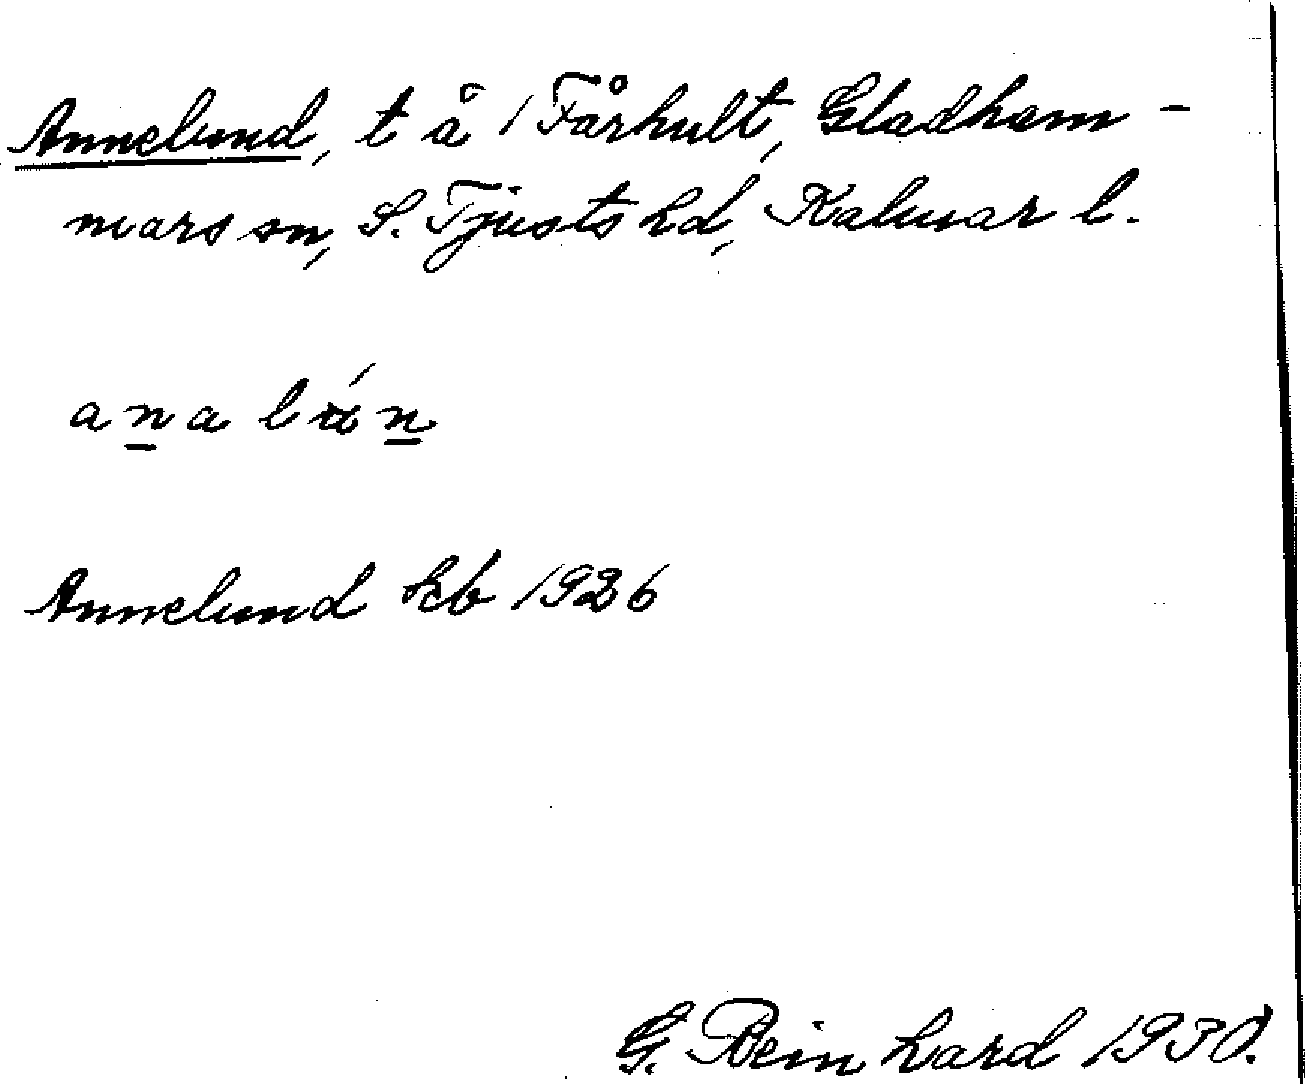 Annelund, t å 1 Fårhult, Gladham-
mars sn, S. Tjusts hd, Kalmar l.
ana lún
Annelund kb 1926
G. Reinhard 1930.